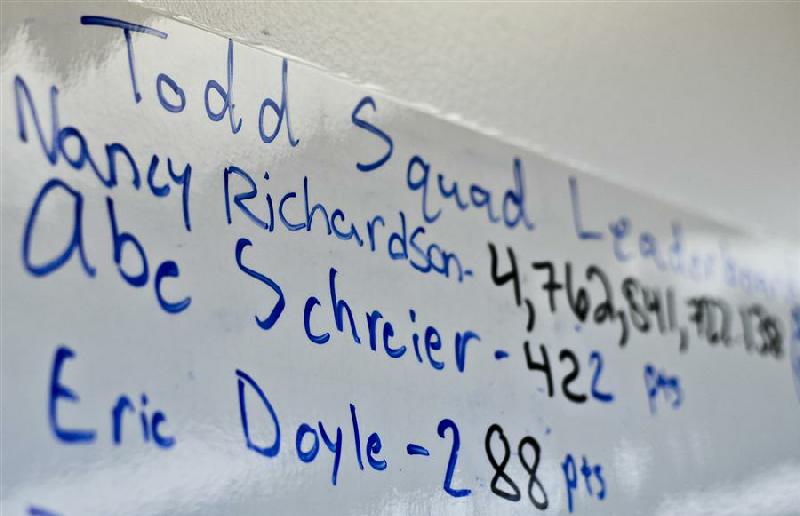 Todd Squad Leaderboard
Nancy Richardson- 4,762,841,722.138
Abe Schreier - 422 pts
Eric Doyle - 288 pts